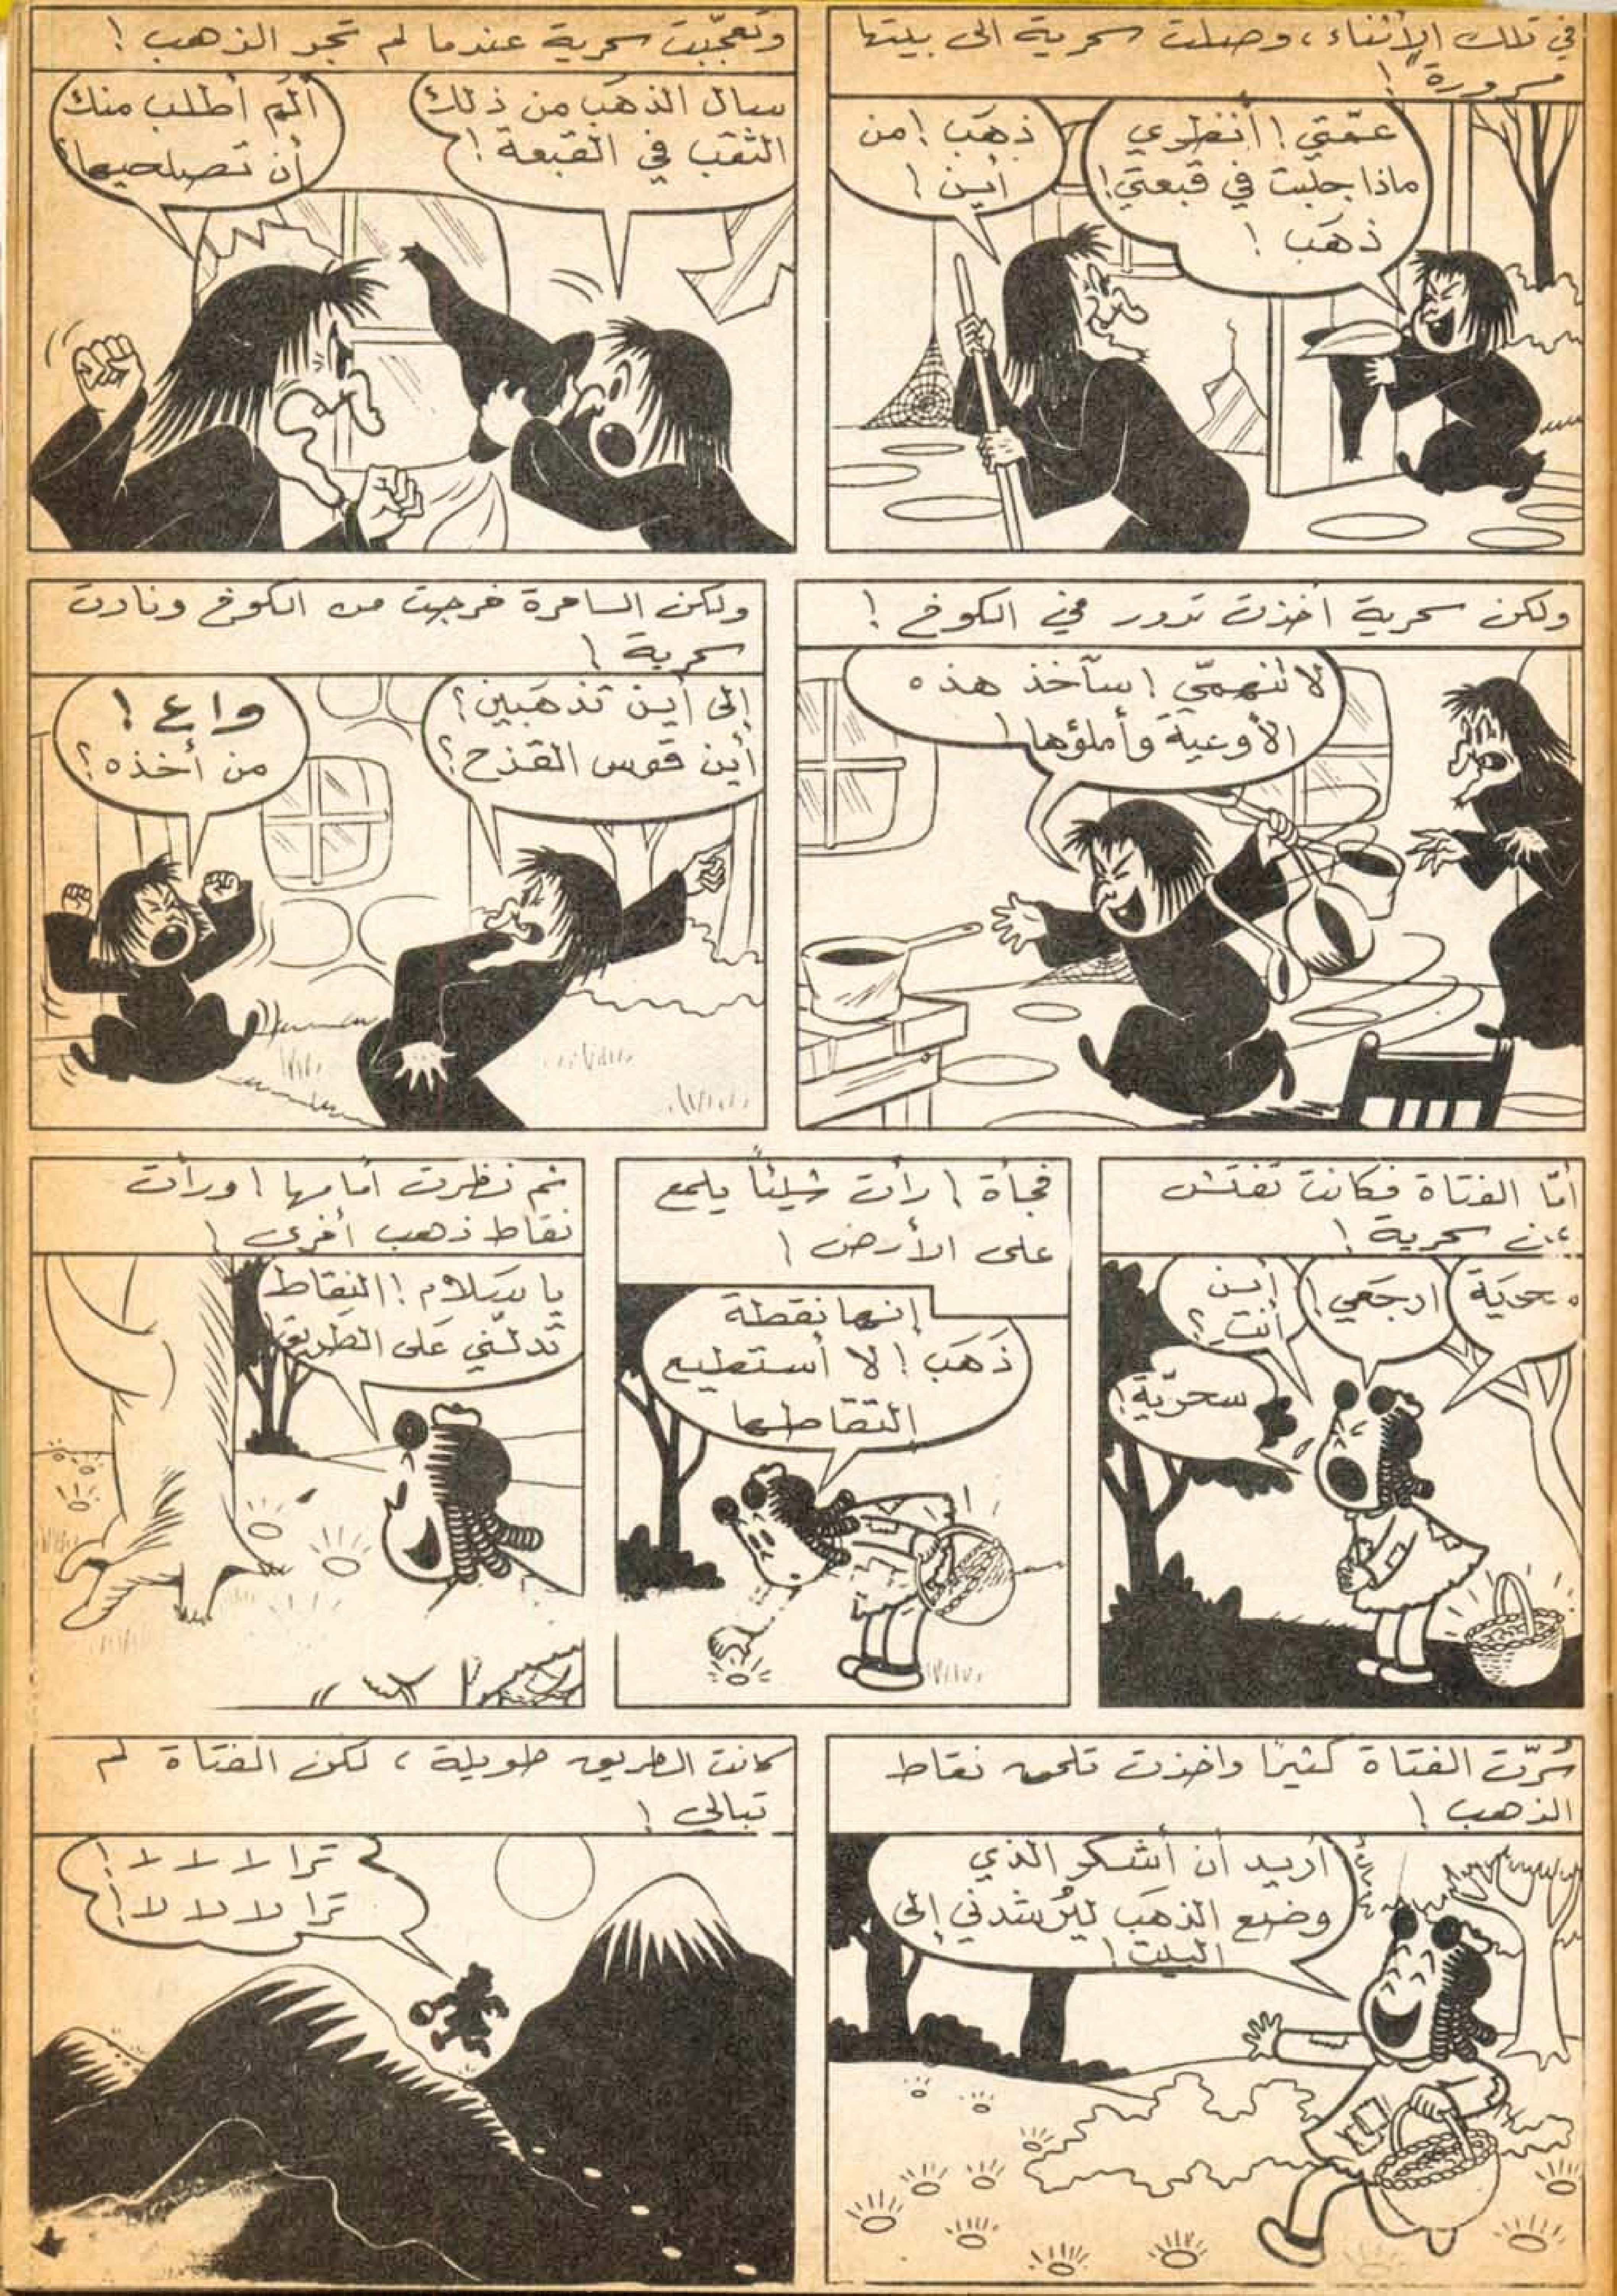 في تلك الأثناء، وصلت سحرية الى بيتها
مسرورة !
عمّتي ! أنظري
ماذا جلبت في قبعتي !
ذهَب !
ذهَب ! من
أين !
وتعجّبت سحرية عندما لم تجد الذهب !
سال الذهَب من ذلك
الثقب في القبعة !
ألم أطلب منك
أن تصلحيها؟
ولكن سحرية اخذت تدور في الكوخ !
لا تهتمّي ! سآخذ هذه
الأوعية وأملؤها !
ولكن الساحرة خرجت من الكوخ ونادت
سحرية !
إلى أين تذهَبين ؟
أين قوس القذح ؟
واع !
من أخذه ؟
أمّا الفتاة فكانت تفتش
عن سحرية !
ارجَعي !
أين
أنتِ ؟
سحريّة !
فجأة ! رأت شيئاً يلمع
على الأرض !
إنها نقطة
ذَهَب ! لا أستطيع
إلتقاطها
ثم نظرت أمامها ! ورأت
نقاط ذهب أخرى !
يا سَلام ! النقاط
تدلّني عَلى الطريق !
سُرّت الفتاة كثيرًا واخذت تلحق نقاط
الذهب !
أريد أن أشكر الذي
وضع الذهَب ليُرشدني إلى
البيت !
كانت الطريق طويلة ، لكن الفتاة لم
تبالي !
ترا لا لا لا !
ترا لا لا لا !